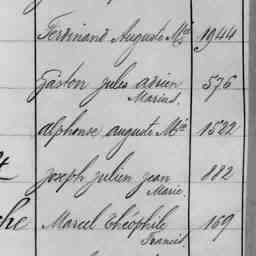 Ferdinand Auguste Mie 1944
Gaston jules adrien 576
Marius.
alphonse auguste Mie 1522
Joseph julien jean 882
Marie.
he Marcel théophile 169
Francis.